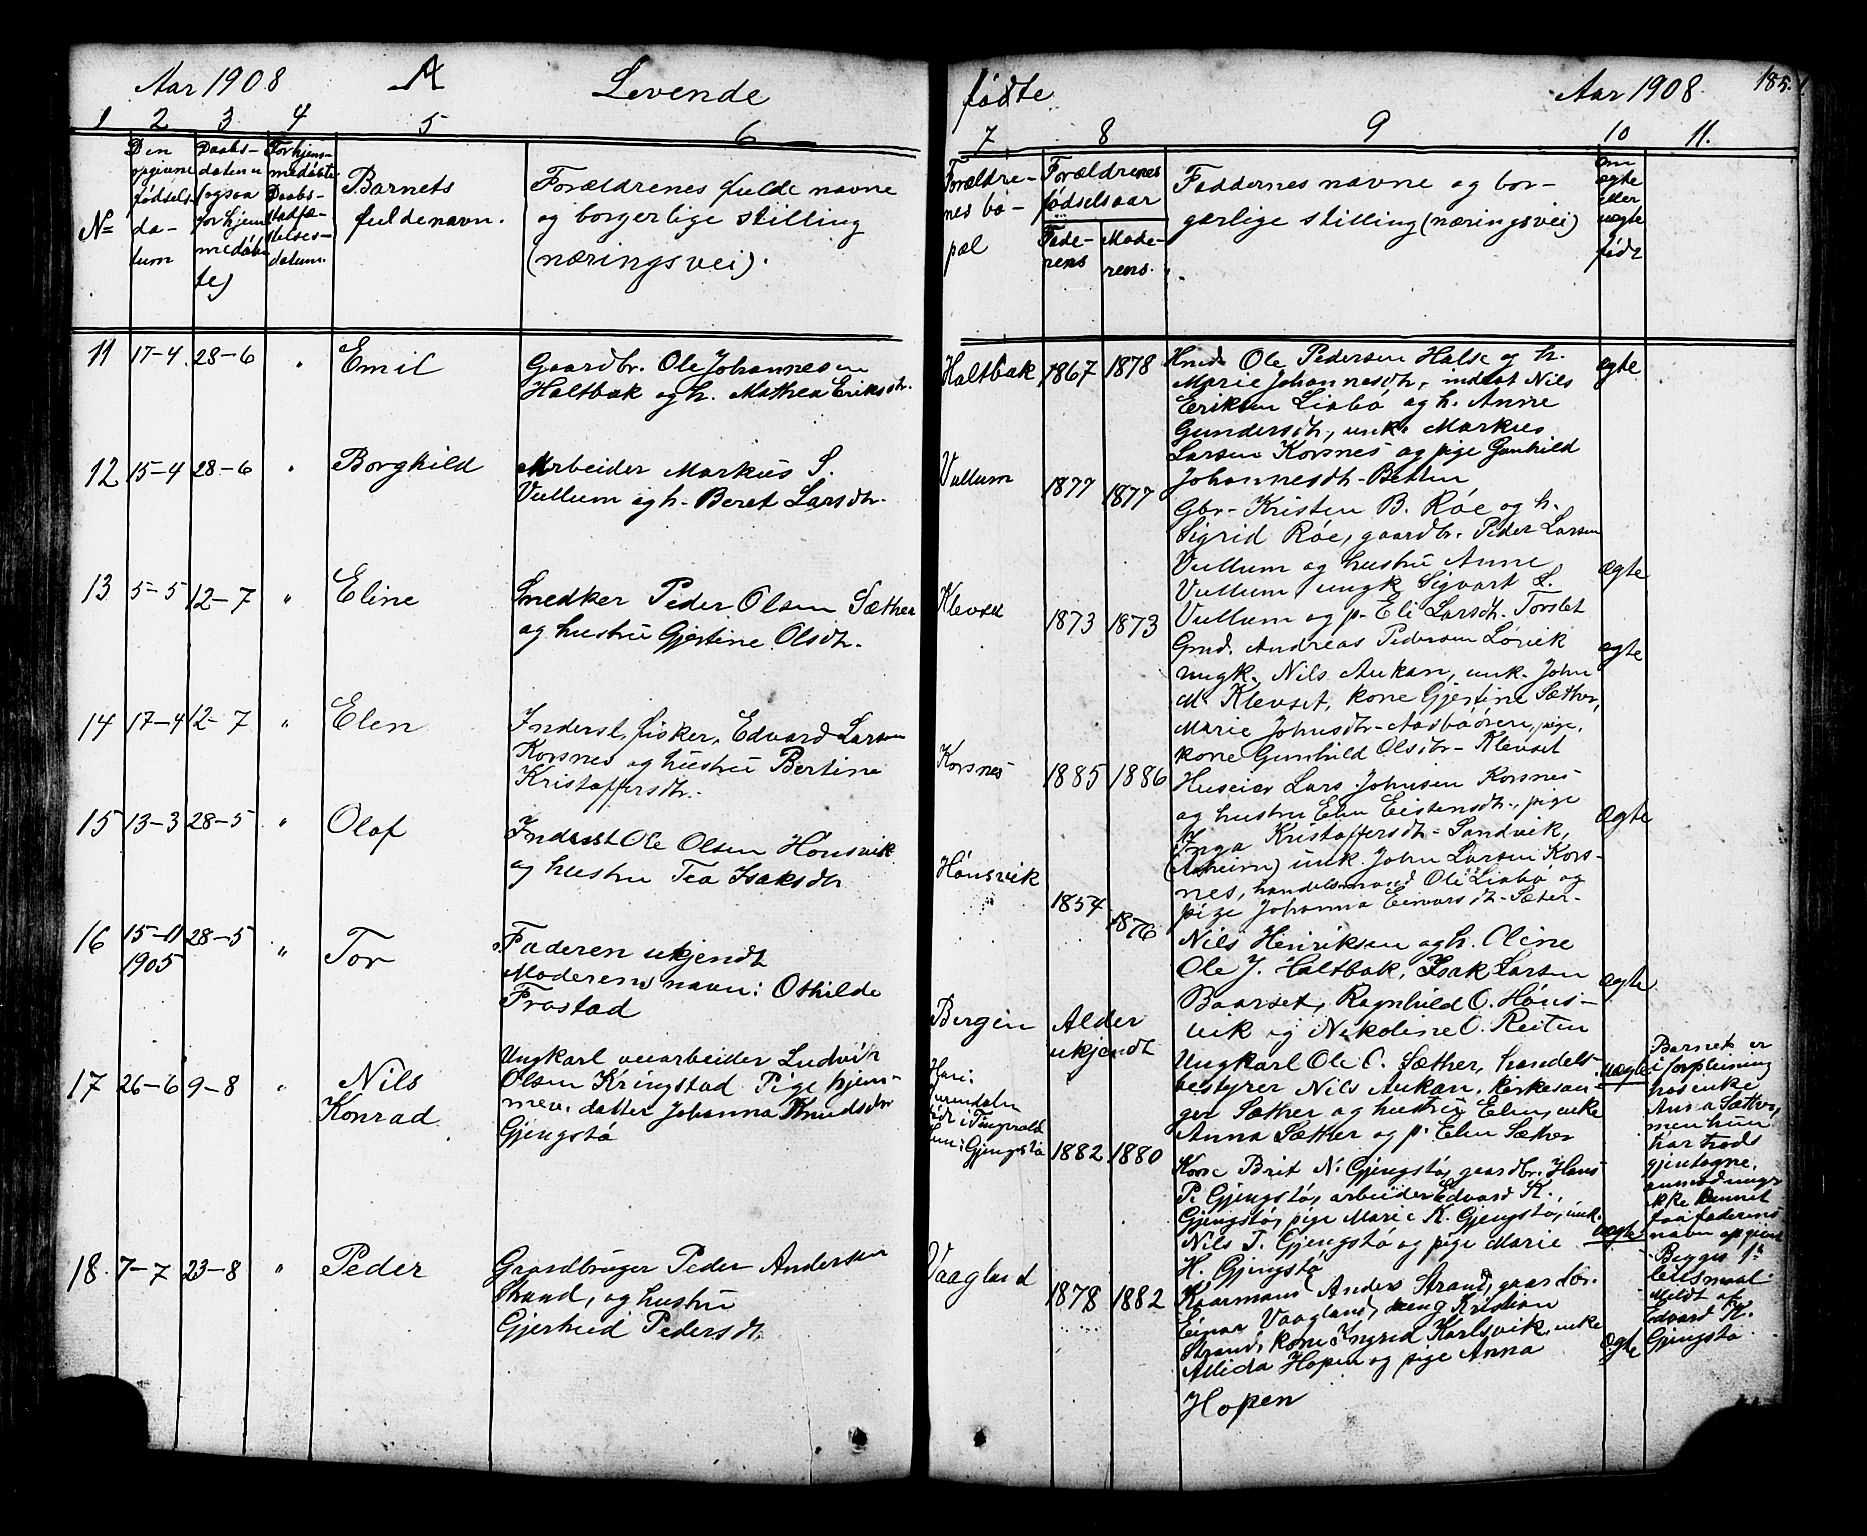 Aar 1908 A Levende
1 2 3 4 5 6
Nº
Den opgivne fødsels-da-tum
Daabs-daten (ogsaa for hjem medøbte)
For hjem-medøbte Daabs-stadfæ-stelses-datum.
Barnets
fulde navn.
Forældrenes fulde navne
og borgerlige stilling
(næringsvei).
11 17-4. 28-6 " Emil Gaardbr. Ole Johannesen
Haltbak og h. Mathea Eriksdtr.
12 15-4 28-6 " Borghild Arbeider Markus S.
Vullum og h. Beret Larsdtr.
13 5-5 12-7 " Eline Snedker Peder Olsen Sæther
og hustru Gjertine Olsdtr.
14 17-4 12-7 " Elen Inderst, fisker, Edvard Larsen
Korsnes og hustru Bertine
Kristoffersdtr.
15 13-3 28-5 " Olaf Inderst Ole Olsen Hønsvik
og hustru Tea Isaksdtr
16 15-11 28-5 " Tor Faderen ukjendt
1905 Moderens navn: Othilde
Frostad
17 26-6 9-8 " Nils Ungkarl veiarbeider Ludvik
Konrad Olsen Kringstad Pige hjem-
mev. datter Johanna Knudsdtr
Gjengstø
18. 7-7 23-8 " Peder Gaardbruger Peder Andersen
Strand, og hustru
Gjertrud Pedersdt.
fødte Aar 1908. 185.
7 8 9 10 11.
Forældre-
nes bo-
pæl
Forældrenes
fødselsaar
Fade-
rens
Mode-
rens.
Faddernes navne og bor-
gerlige stilling (næringsvei)
Om
ægte
eller
uægte
født
Haltbak 1867 1878 Hmd. Ole Pedersen Halse og h. ægte
Marie Johannesdtr, inderst Nils
Eriksen Liabø og h. Anne
Gundersdtr, unk. Markus
Larsen Korsnes og pige Gunhild
Johannesdtr. Betten
Vullum 1877 1877 Gbr. Kristen B. Røe og h.
Sigrid Røe, gaardbr. Peder Larsen
Vullum og hustru Anne ægte
Vullum ungk Sigvart L.
Vullum og p. Eli Larsdtr. Torslet
Klevset 1873 1873 Gmd. Andreas Pedersen Lørvik ægte
ungk. Nils Aukan, unk. John
M. Klevset, kone Gjertine Sæther,
Marie Johnsdtr. Aasbøøren, pige,
kone Gunhild Olsdtr. Klevset
Korsnes 1885 1886 Huseier Lars Johnsen Korsnes
og hustru Elen Eistensdtr., pige ægte
Inga Kristoffersdtr. Sandvik,
unk. John Larsen Kors-
nes, handelsmand Ole Liabø og
pige Johanna Eenvarsdtr. Sæter.
Hønsvik 1854 1876 Nils Henriksen og h. Oline
Ole J. Haltbak, Isak Larsen ægte
Baarset, Ragnhild O. Høns-
vik og Nikoline O. Reiten
Bergen Alder
ukjendt
Ungkarl Ole O. Sæther, handels- uægte
bestyrer Nils Aukan, kirkesan-
ger Sæther og hustru Elen, enke
Anna Sæther og p. Elen Sæther
Barnet er
i forpleining
hos enke
Anna Sæther,
men hun
har trods
gjentagne
anmodninger
ikke kunnet
faa faderens
navn opgivet
Han i
Surendalen
født i Tingvold
hun i Gjengstø 1882 1880
Kone Brit N. Gjengstø, gaardbr. Hans
P. Gjengstø, arbeider Edvard K.
Gjengstø, pige Marie K. Gjengstø, unk. uægte
Nils T. Gjengstø og pige Marie
H. Gjengstø
Begges 1ste
leiersmaal.
Meldt af
Edvard K.
Gjengstø
Vaagland 1878 1882
Kaarmand Anders Strand, gaardbr.
Einar Vaagland, ung Kristian
Strand, kone Ingrid Karlsvik, enke
Allida Hopen og pige Anna ægte
Hopen